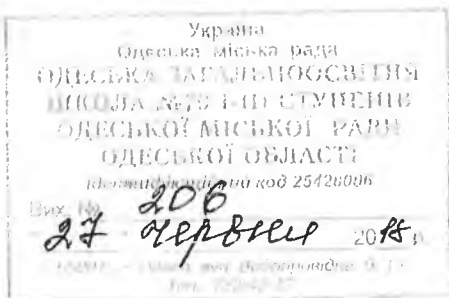 Україна
Одеська міська рада
ОДЕСЬКА ЗАГАЛЬНООСВІТНЯ
ШКОЛА І-ІІІ СТУПЕНІВ
ОДЕСЬКОЇ МІСЬКОЇ РАДИ
ОДЕСЬКОЇ ОБЛАСТІ
Ідентифікаційний код 25426096
Вих. № 206
27 червня 2018 р.